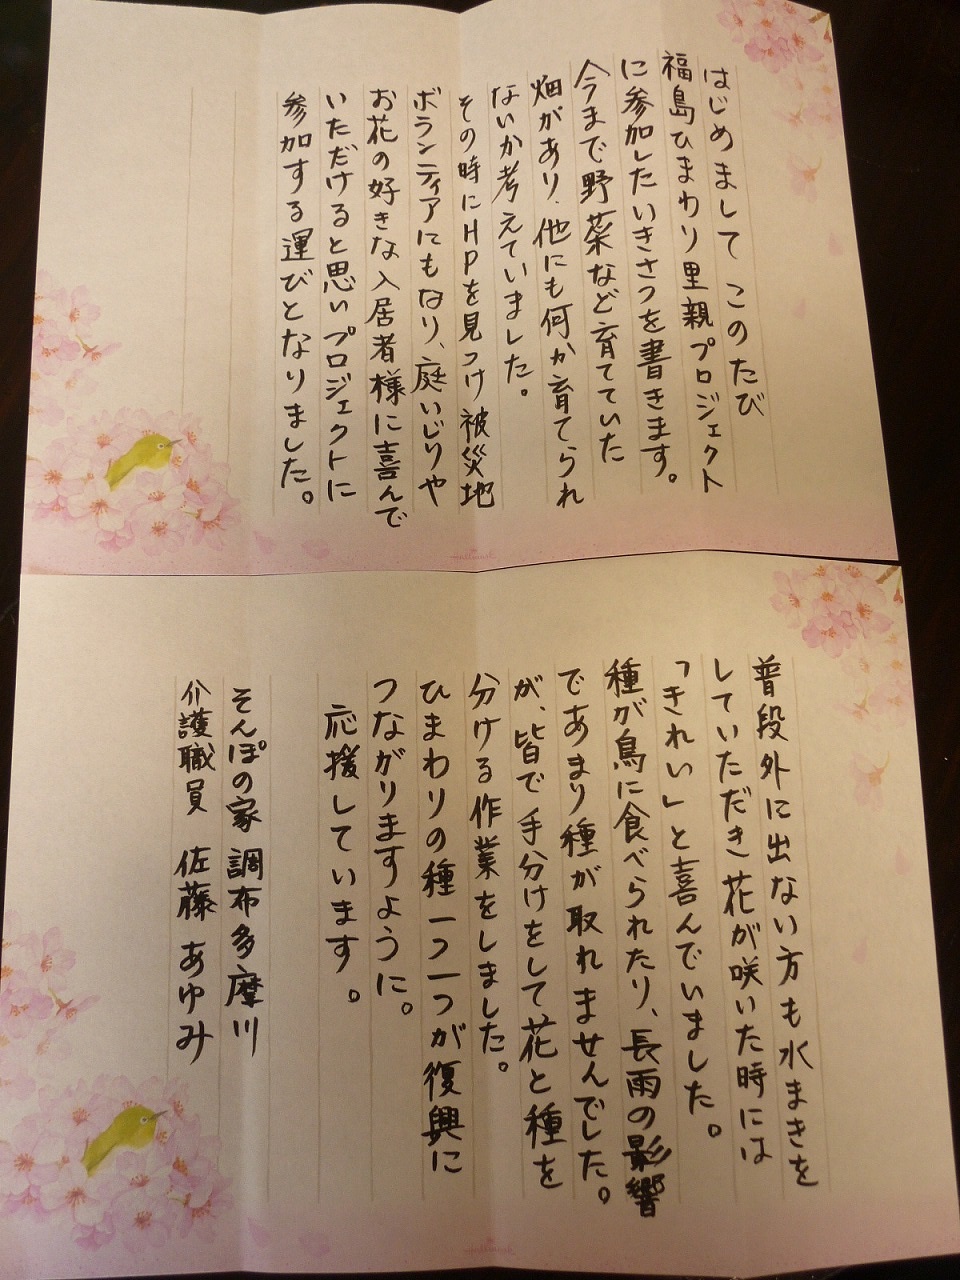 はじめまして このたび
福島ひまわり里親プロジェクト
に参加したいきさつを書きます。
今まで野菜など育てていた
畑があり、他にも何か育てられ
ないか考えていました。
その時にHPを見つけ被災地
ボランティアにもなり、庭いじりや
お花の好きな入居者様に喜んで
いただけると思いプロジェクトに
参加する運びとなりました。
普段外に出ない方も水まきを
していただき花が咲いた時には
「きれい」と喜んでいました。
種が鳥に食べられたり、長雨の影響
であまり種が取れませんでした。
が、皆で手分けをして花と種を
分ける作業をしました。
ひまわりの種一つ一つが復興に
つながりますように。
応援しています。
そんぽの家 調布多摩川
介護職員 佐藤 あゆみ